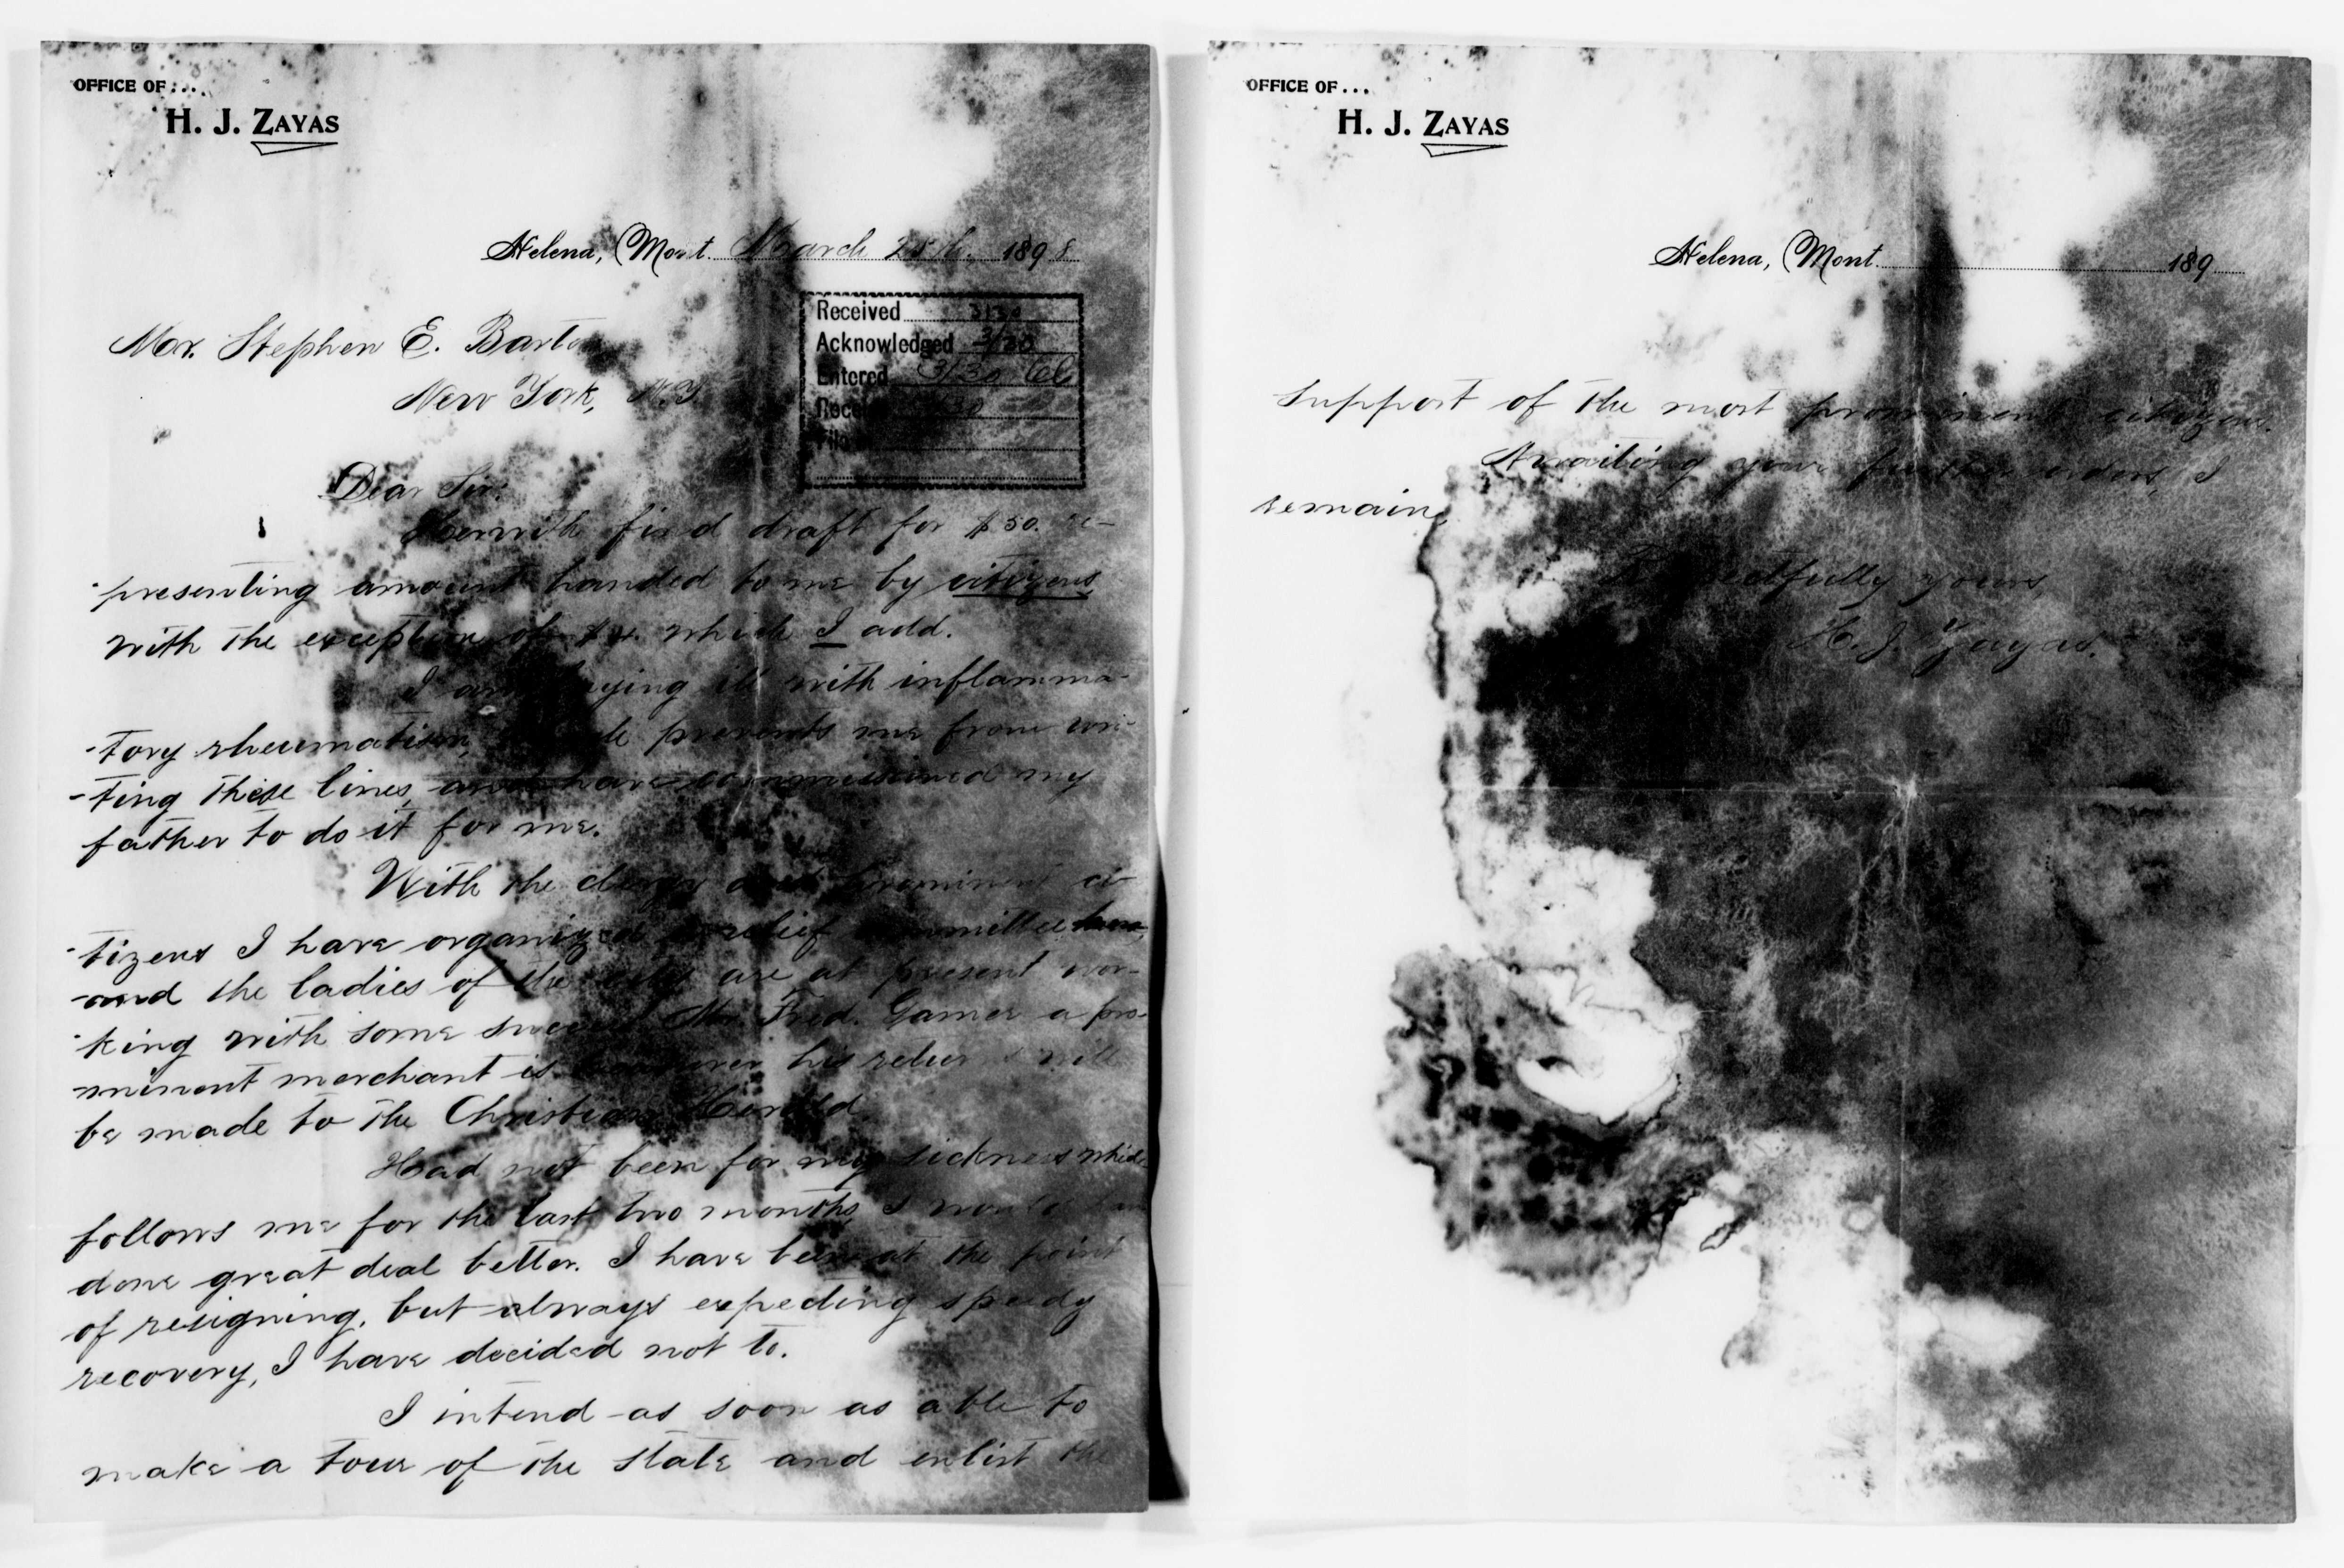 OFFICE OF....
H. J. ZAYAS
Helena, Mont. March 25th. 1898
Received 3/30
Acknowledged 3/30
Entered 3/30
Mr. Stephen E. Barton
New York, N.Y
Dear Sir:
Herewith find draft for $50. re-
-presenting amount handed to me by citizens
with the exception of $4. which I add.
I am laying ill with inflamma-
-tory rheumatism, which prevents me from wri-
-ting these lines, and have commissioned my
father to do it for me.
With the clergy and prominent ci-
-tizens I have organized a relief committee here,
and the ladies of the city are at present wor-
-king with some success. Mr Fred. Gamer a pro-
minent merchant is treasurer, his will
be made to the Christian Herald
Had not been for my sickness which
follows me for the last two months, I would have
done great deal better. I have been at the point
of resigning, but always expecting speedy
recovery, I have decided not to.
I intend as soon as able to
make a tour of the state and enlist the
OFFICE OF...
H. J. ZAYAS
Helena, Mont. 189
support of the most prominent citizens.
Awaiting your further orders, I
remain,
Respectfully yours,
H. J. Zayas.